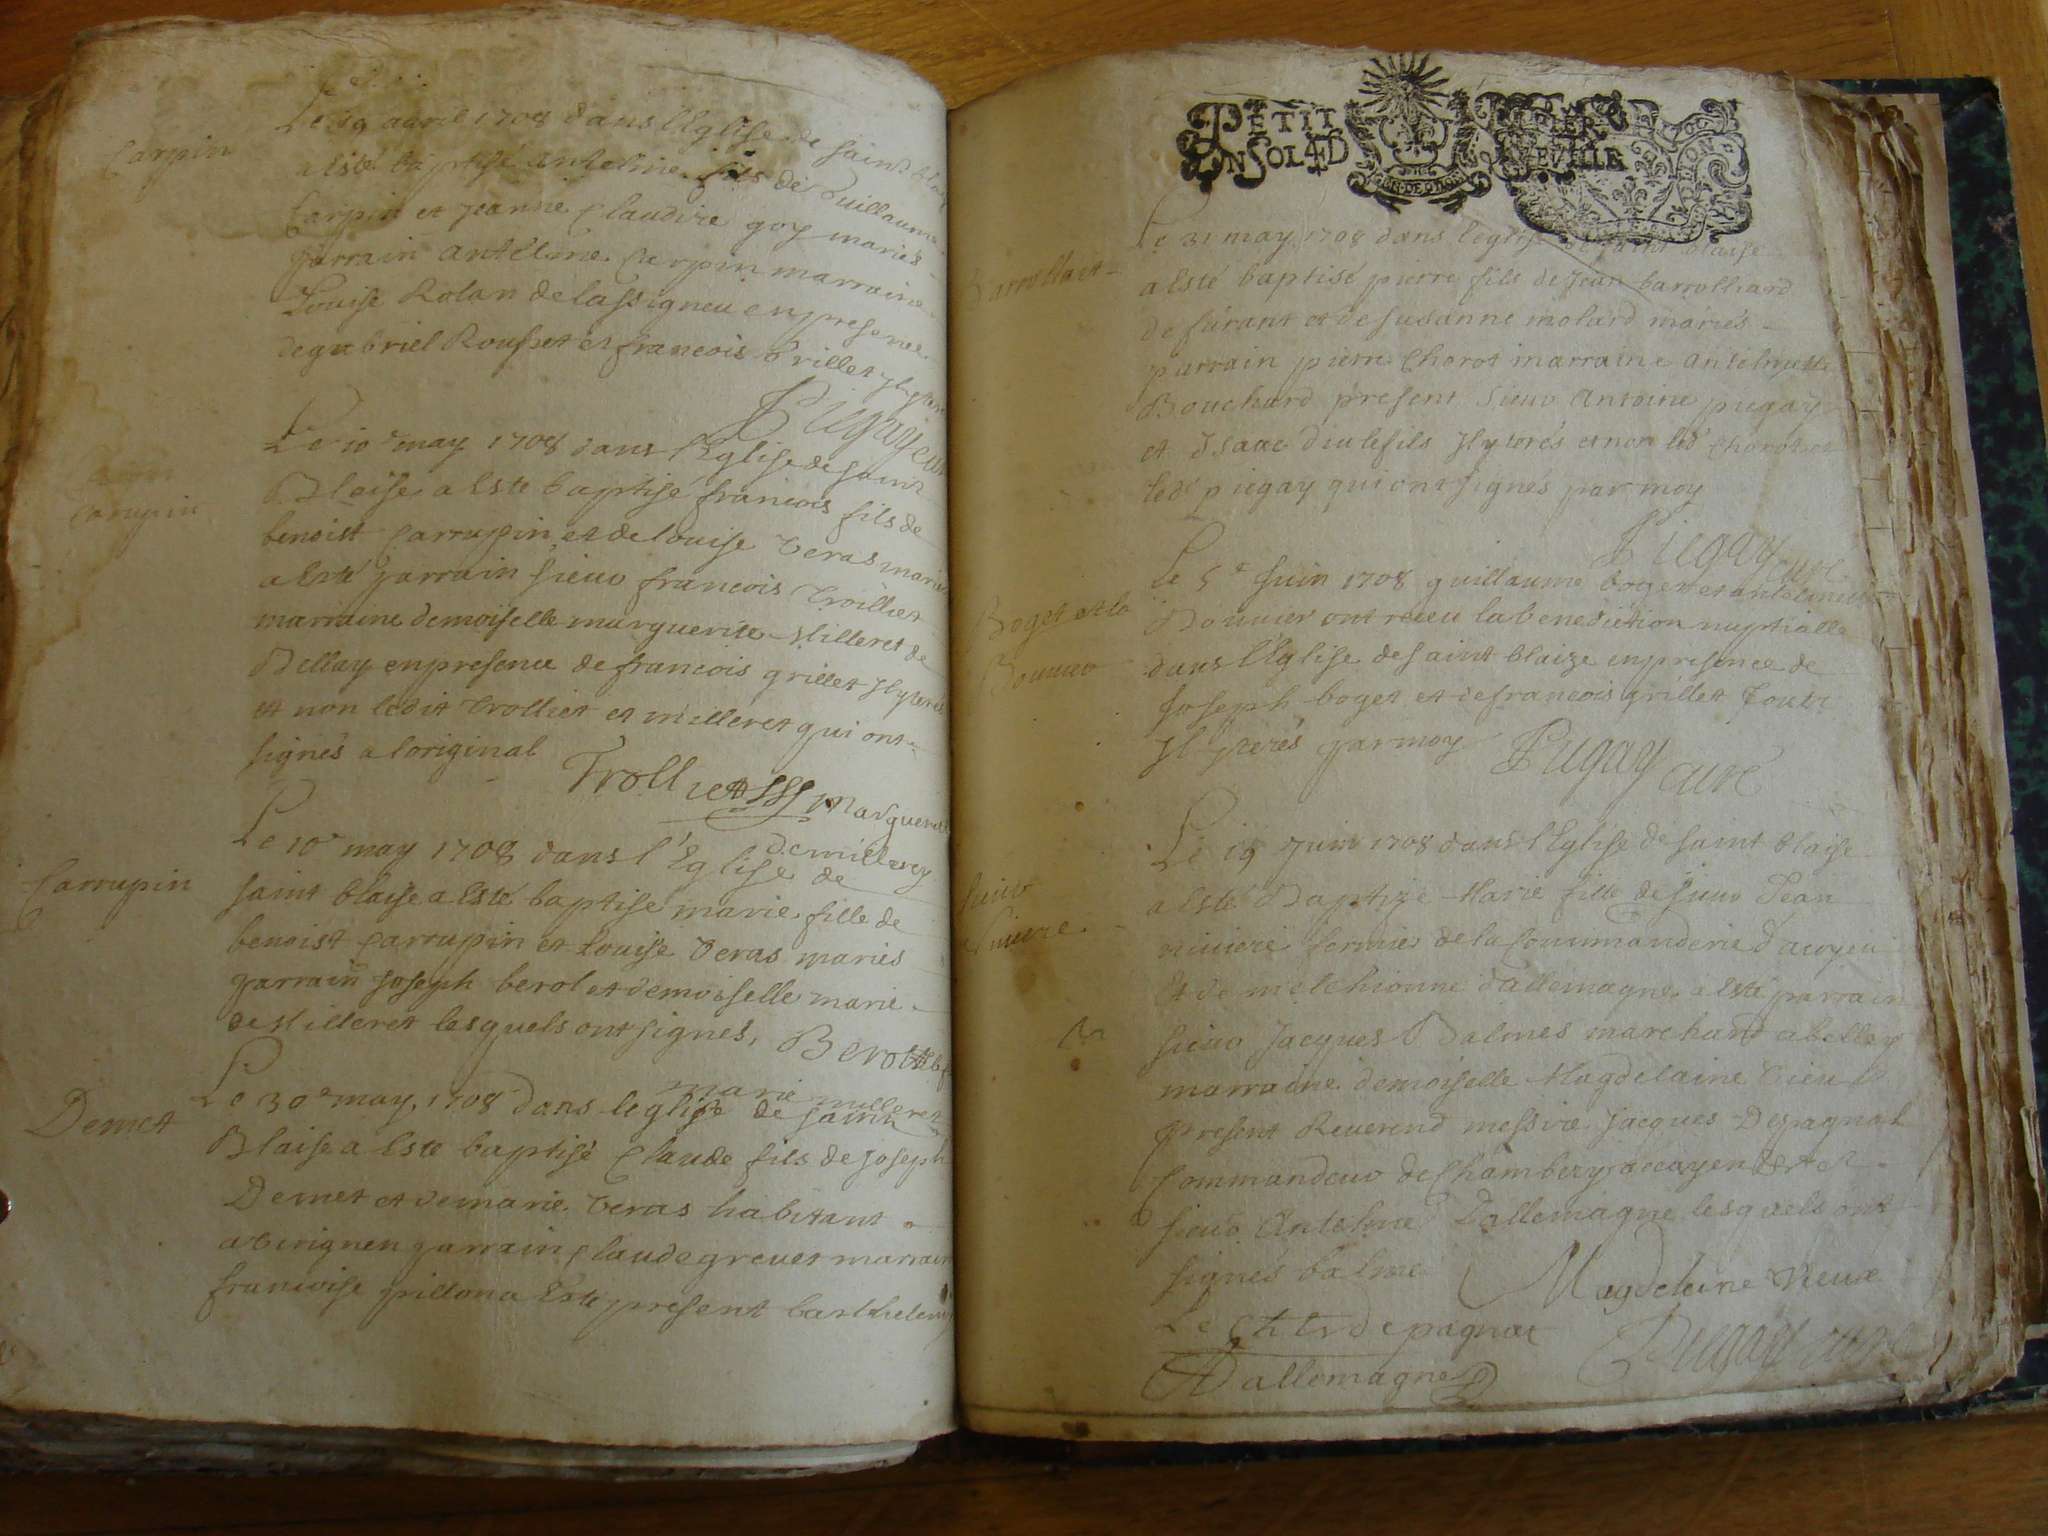 Carpin
Le 19 avril 1708 dans l'Eglise de saint
a Esté baptisé antelme fils de Guillaume
Carpin et jeanne Claudine goy mariés
parrain antelme Carpin marraine
Louise Rolan de lassigneu en presence
de gabriel Rousset et francois Grillet
Piegay curé
Carrupin
Le 10e may 1708 dans l'Eglise de saint
Blaise a Esté baptisé francois fils de
benoist Carrupin et de louise Veras mariés
a Esté parrain sieur francois Trollliet
marraine demoiselle marguerite Milleret de
Bellay en presence de francois grillet Illyterés
et non ledit trolliet et milleret qui ont
signés a loriginal
Trolliet marguerite
demillerey
Carrupin
Le 10e may 1708 dans l'Eglise de
saint blaise a Esté baptisé marie fille de
benoist Carrupin et Louise Veras mariés
parrain Joseph berol et demoiselle marie
de Milleret lesquels ont signés,
Berol
marie milleret
Demet
Le 30e may 1708 dans leglise de saint
Blaise a Esté baptisé Claude fils de joseph
Demet et de marie Veras habitant
a Virignen parrain Claude grevet marraine
francoise pillon a Esté present barthelemy
PETIT PAPIER
UN SOL 4 D LA FEUILLE
GENERAL DE DIJON
Barrolliard
Le 31 may 1708 dans l'eglise de saint blaise
a Esté baptisé pierre fils de Jean barrolliard
de surant et de susanne molard mariés
parrain pierre Chorot marraine antelmette
Bouchard present Sieur Antoine piegay
et Isaac diulefils Illyterés et non led Chorot et
led piegay qui ont signés par moy
Piegay curé
Boget et la
Bouvier
Le 5e Juin 1708 guillaume boget et antelmette
Bouvier ont receu la benediction nuptialle
dans l'Eglise de saint blaize en presence de
Joseph boget et de francois grillet Tous
Illyterés par moy
Piegay curé
Sieur
Riviere
Le 19 Juin 1708 dans l'Eglise de saint blaise
a Esté Baptizé Marie fille de sieur Jean
riviere fermier de la Commanderie d'avoyeu
Et de melchionne dallemagne a Esté parrain
sieur Jacques Balmes marchand a belley
marraine demoiselle Magdelaine
present Reverend messire Jacques Depagnat
Commandeur de Chambery accayen &
sieur Antelme Dallemagne lesquels ont
signés balme
Magdeleine
Le depagnat
Piegay curé
A Dallemagne